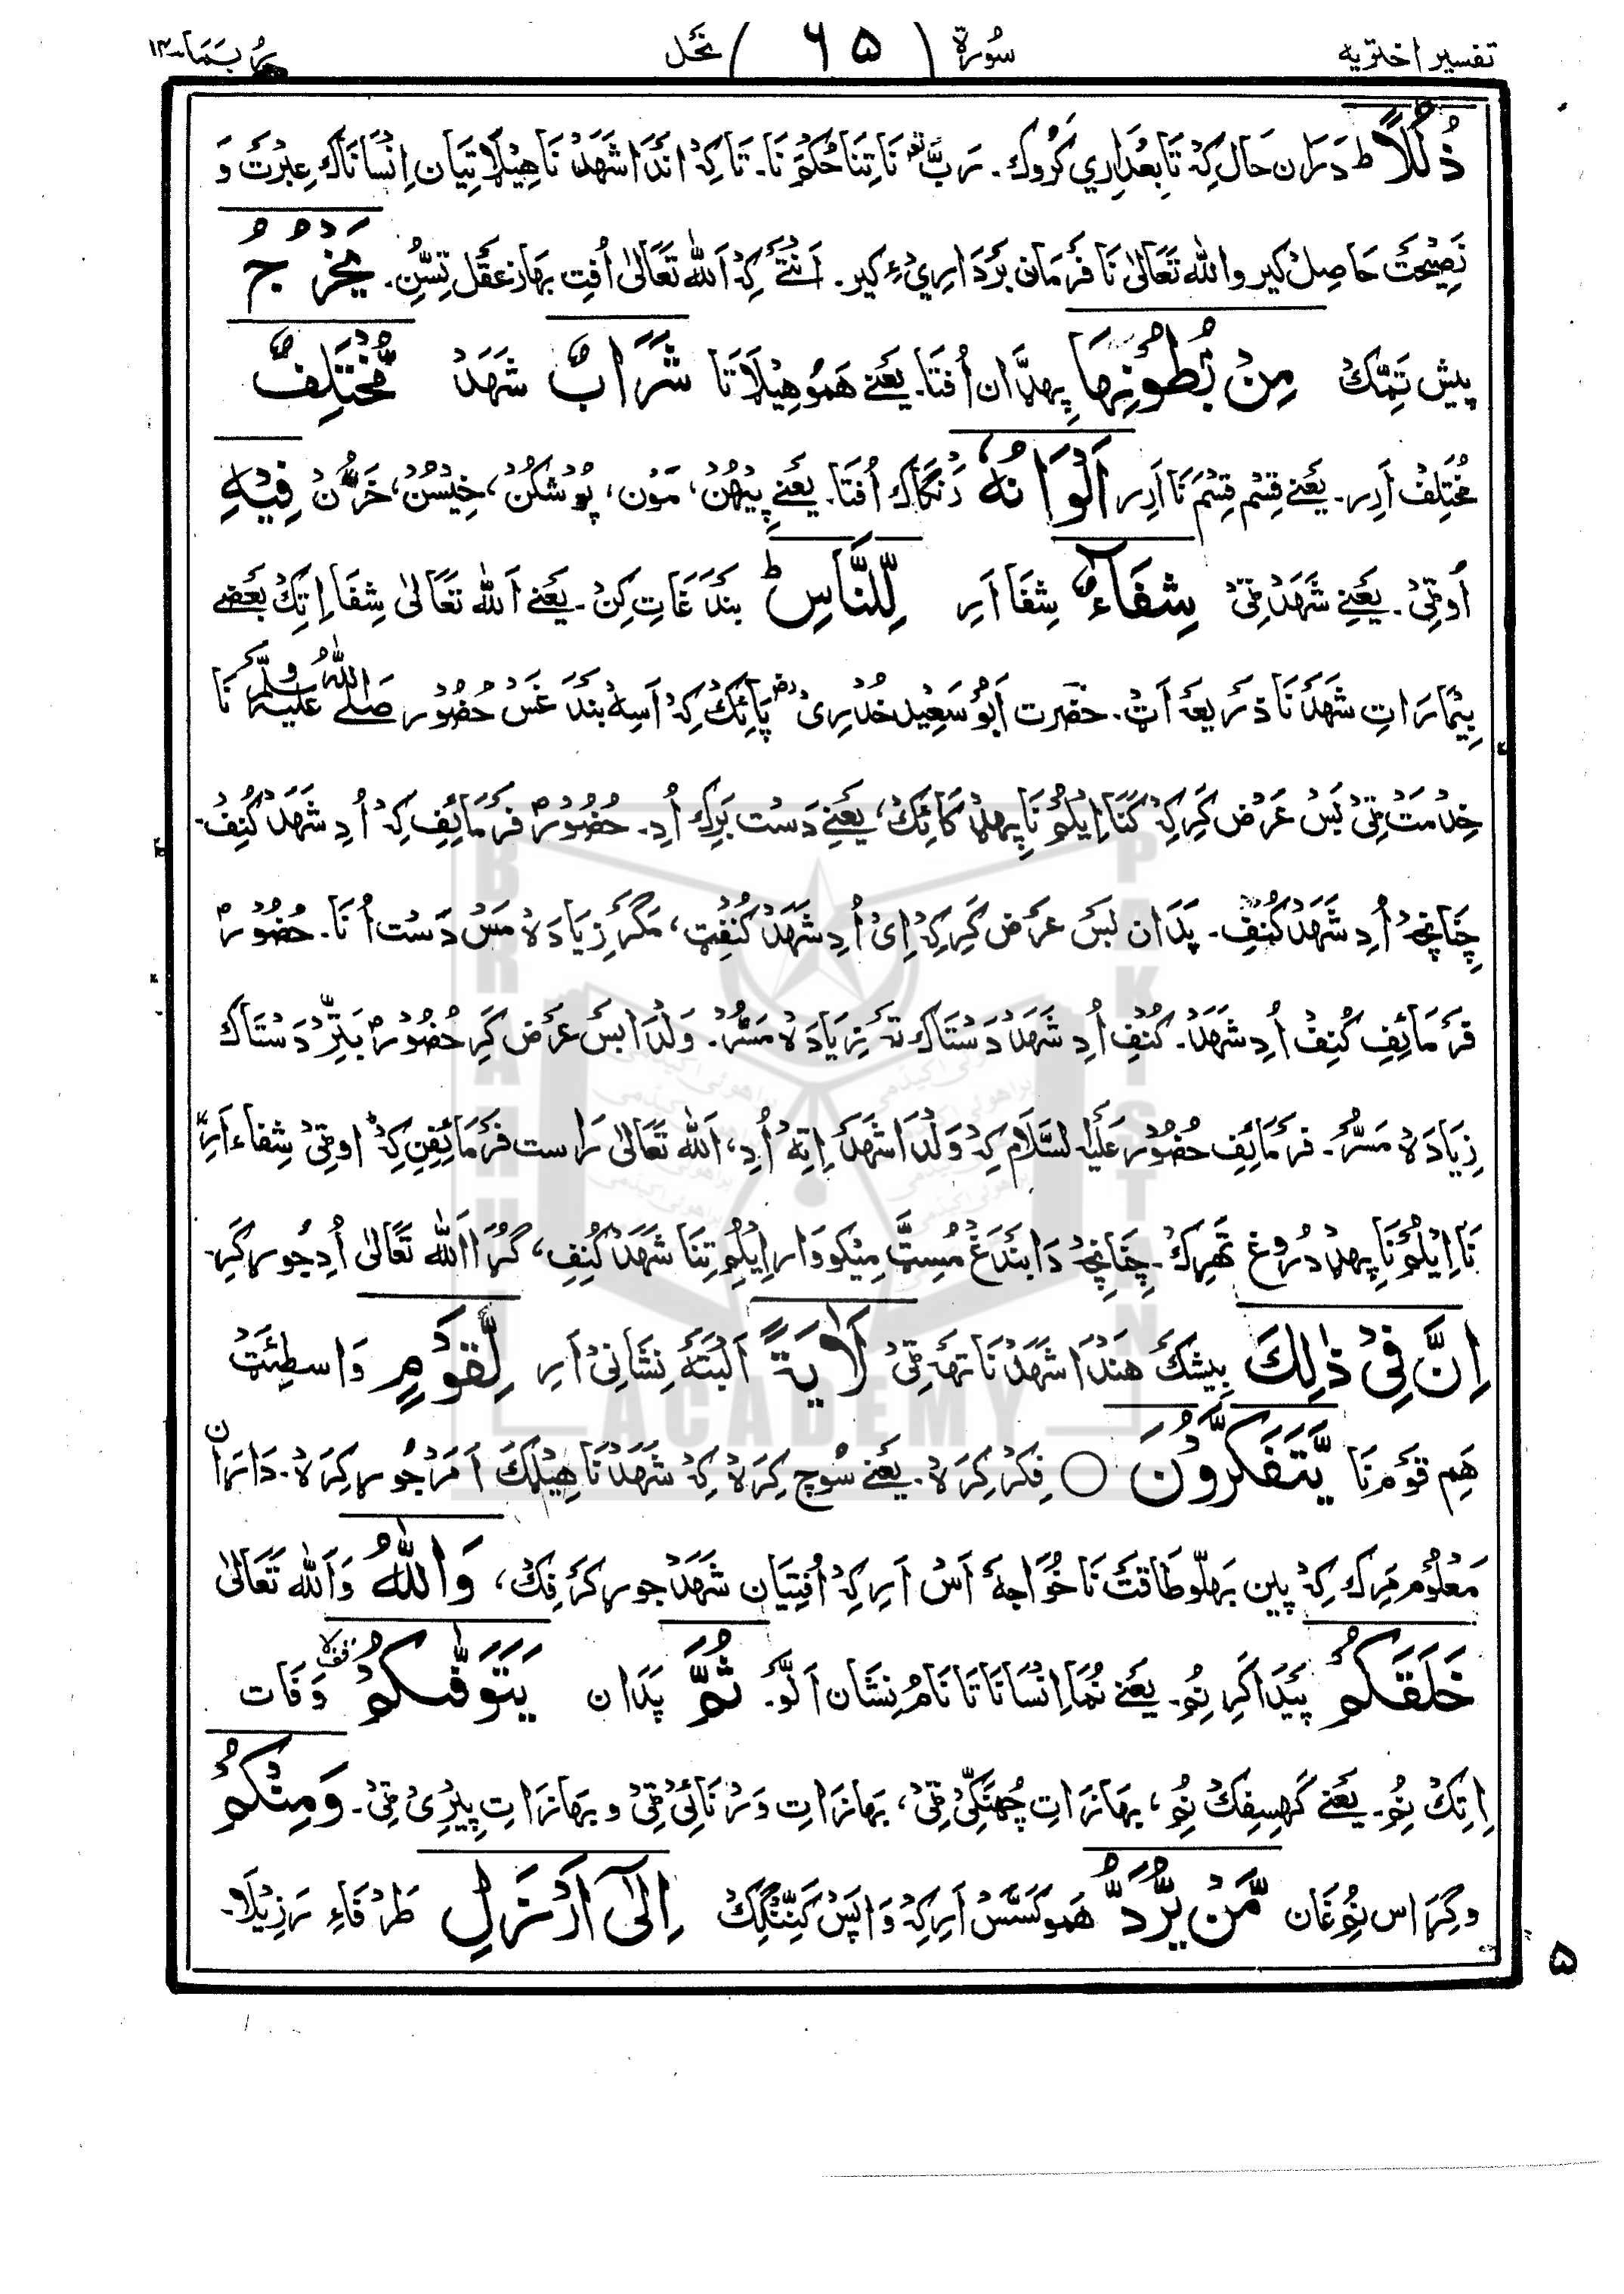 تفسیر اختریه سُورة ( ۶۵ ) نَحل رُبَمَا ۱۴
ذُلُلًا ط دَران حَال کِہ تَابعداری کَرُوک۔ رَبّ نَا تِنَا حُکم نَا۔ تَاکِہ اندَا شَهَد نَا هِیلاتِیَان اِنسَانَاک عِبرَت وَ
نَصِیحَت حَاصِل کیر و اللہ تَعَالیٰ نَا فَرمَانی بَردَاری ءِ کیر۔ اَنتَے کِہ اَللہ تَعَالیٰ اُفتِ بهَاز عَقل تِسُّنِ۔ یَخْرُجُ
پیش تَمِّک مِنْ بُطُوْنِهَا پِهڈَان اُفتَا۔ یَعنے هَمُو هِیلَاتَا شَرَابٌ شَهَد مُّخْتَلِفٌ
مُختَلِف اَدِر۔ یَعنے قِسم قِسم نَا اَدِر اَلْوَانُهٗ رَنگَاک اُفتَا۔ یَعنے پِیهُن، مَوُن، پُوشکُن، خِیسُن، خَرُّن فِیْهِ
اُوٹی۔ یَعنِے شَهَد ٹی شِفَآءٌ شِفَا اَرِ لِّلنَّاسِ ط بَندَغَاتِ کِن۔ یَعنے اَللہ تَعَالیٰ شِفَا اِتِک بَعضے
بِیمَارَاتِ شَهَد نَا ذَرِیعَہ اَٹ۔ حضرت اَبُو سَعِید خُدرِی رض پَائِک کِہ اَسِہ بَندَغَس حُضُور صَلے اللہُ عَلَیہِ وسلّم نَا
خِدمَت ٹی بَس عَرض کَرِ کِہ کَنَا اِیلُم نَا پِهڈ کَائِک، یَعنے دَست بَرِک اُدِ۔ حُضُورؐ فَرمَائِفِ کِہ اُدِ شَهَد کُنِف۔
چُنَانچِہ اُدِ شَهَد کُنِفِ۔ پَدَان بَس عَرض کَرِ کِہ اِی اُدِ شَهَد کُنِفِٹ، مَگر زِیَادَہ مَس دَست اُنَا۔ حُضُورؐ
فَرمَائِفِ کُنِف اُدِ شَهَد۔ کُنِفِ اُدِ شَهَد دَستَاک تَہ زِیَادَہ مَسُّر۔ وَلدَا بَس عَرض کَرِ حُضُورؐ بَلِّر دَستَاک
زِیَادَہ مَسُّر۔ فَرمَائِفِ حُضُور عَلَیہِ السَّلَام کِہ وَلدَا شَهَد اِتِہ اُدِ، اَللہ تَعَالیٰ رَاست فَرمَائِفِنِ کِہ اوٹی شِفَاء اَرِ
نَا اِیلُم نَا پِهڈ دُرُوغ تَهرِک۔ چُنَانچِہ دَا بَندَغ مُسِٹِّ مِیکو وَار اِیلُم تِنَا شَهَد کُنِفِ، گُڑَا اَللہ تَعَالیٰ اُدِ جُور کَرِ۔
اِنَّ فِیْ ذٰلِكَ بِیشَک هندَا شَهَد نَا تهَہ ٹی لَاٰیَةً اَلبَتَّہ نِشَانِی اَرِ لِّقَوْمٍ وَاسطِئَٹ
هَم قَوم نَا یَّتَفَكَّرُوْنَ ○ فِکر کِرَہ۔ یَعنے سوچ کِرَہ کِہ شَهَد نَا هِیلک اَمَر جُور کِرَہ۔ دَارَان
مَعلُوم مَرِک کِہ پین بَهلّو طَاقَت نَا خُوَاجَہ اَس اَرِ کِہ اُفتِیَان شَهَد جور کَرفِک، وَاللّٰهُ وَاَللہ تَعَالیٰ
خَلَقَكُمْ پَیدَا کَرِ نُم۔ یَعنے نُمَا اِنسَانَاتَا نَام نِشَان اَلَّو۔ ثُمَّ پَدَان یَتَوَفّٰىكُمْ وَفَات
اِتِک نُم۔ یَعنے کَهسِفِک نُم، بهَازَاتِ چُهنَکی ٹی، بهَازَاتِ وَرنَائی ٹی و بهَازَاتِ پِیرِی ٹی۔ وَمِنْكُمْ
و گڑَاس نُمغَان مَّنْ یُّرَدُّ هَمو کَسَّس اَرِ کِہ وَاپَس کَنِّنگِک اِلٰۤى اَرْذَلِ طَرفَاءِ رَزِیلَا۔
۵
BRAHUI ACADEMY PAKISTAN